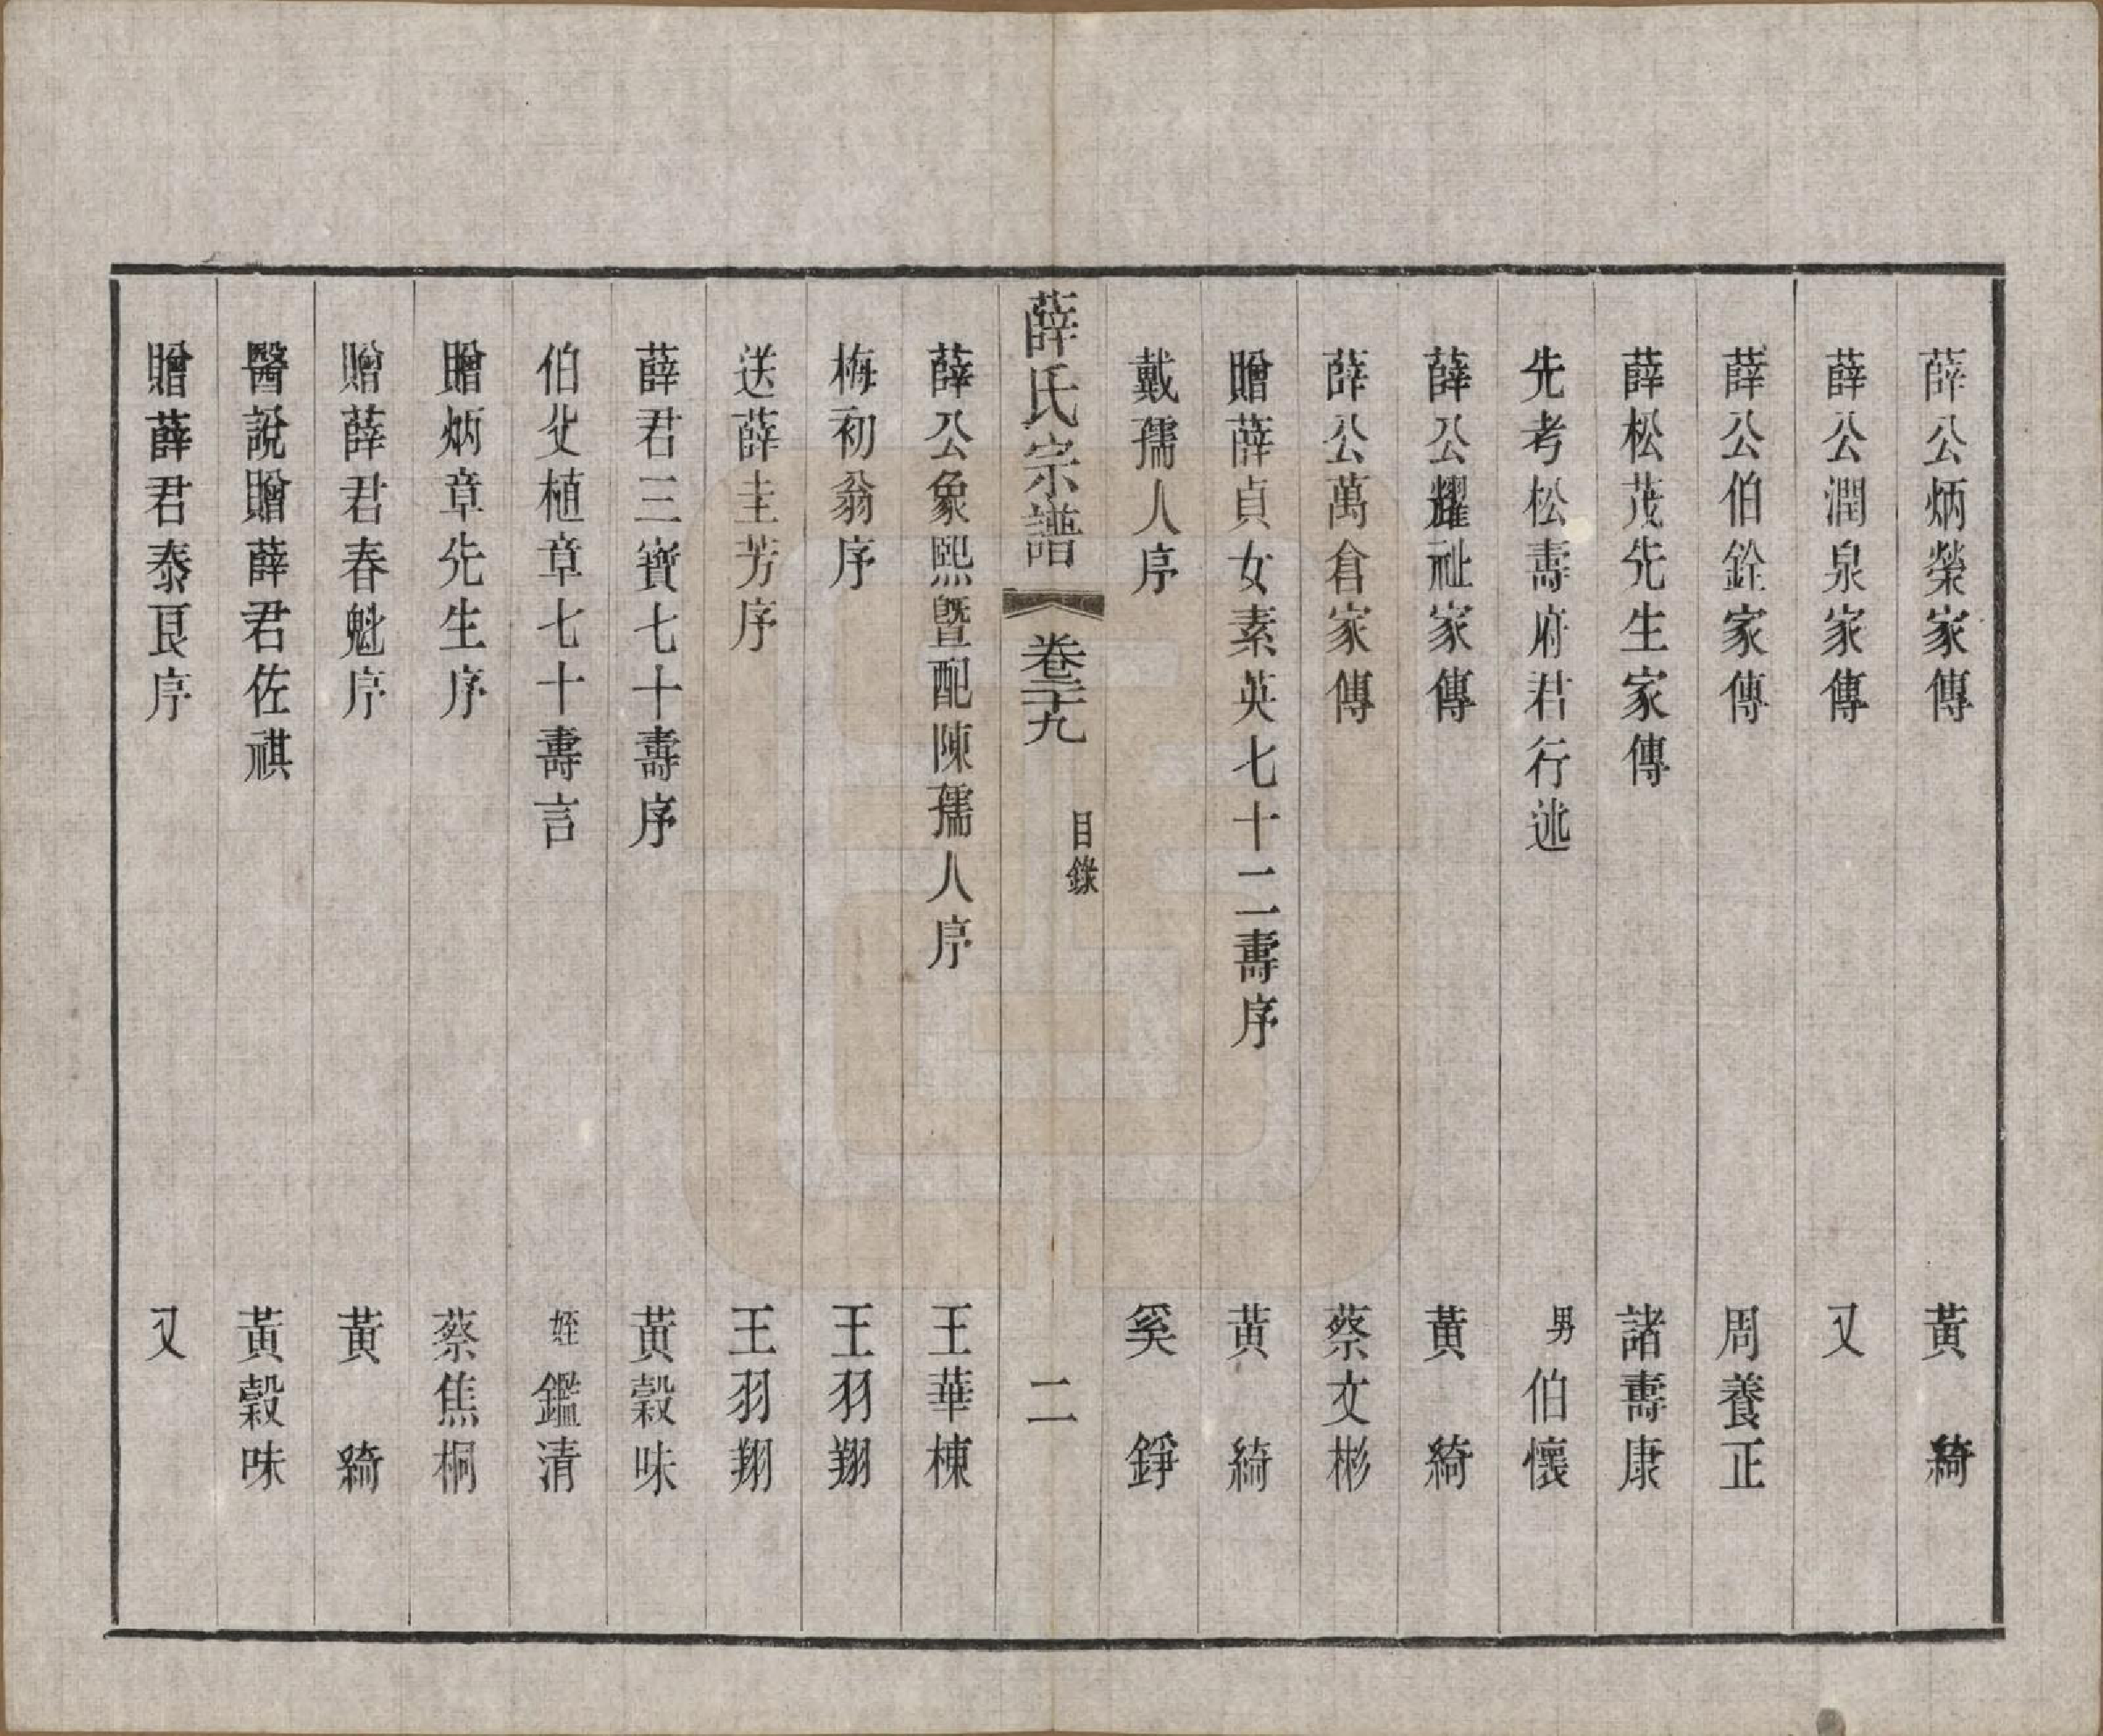 薛公炳榮家傳 黃綺
薛公潤泉家傳 又
薛公伯銓家傳 周養正
薛松茂先生家傳 諸壽康
先考松壽府君行述 男伯懷
薛公耀祉家傳 黃綺
薛公萬倉家傳 蔡文彬
贈薛貞女素英七十二壽序 黃綺
戴孺人序 奚錚
薛氏宗譜 卷二十九 目錄 二
薛公象熙曁配陳孺人序 王華棟
梅初翁序 王羽翔
送薛圭芳序 王羽翔
薛君三寶七十壽序 黃穀味
伯父植章七十壽言 姪鑑清
贈炳章先生序 蔡焦桐
贈薛君春魁序 黃綺
醫說贈薛君佐祺 黃穀味
贈薛君泰艮序 又